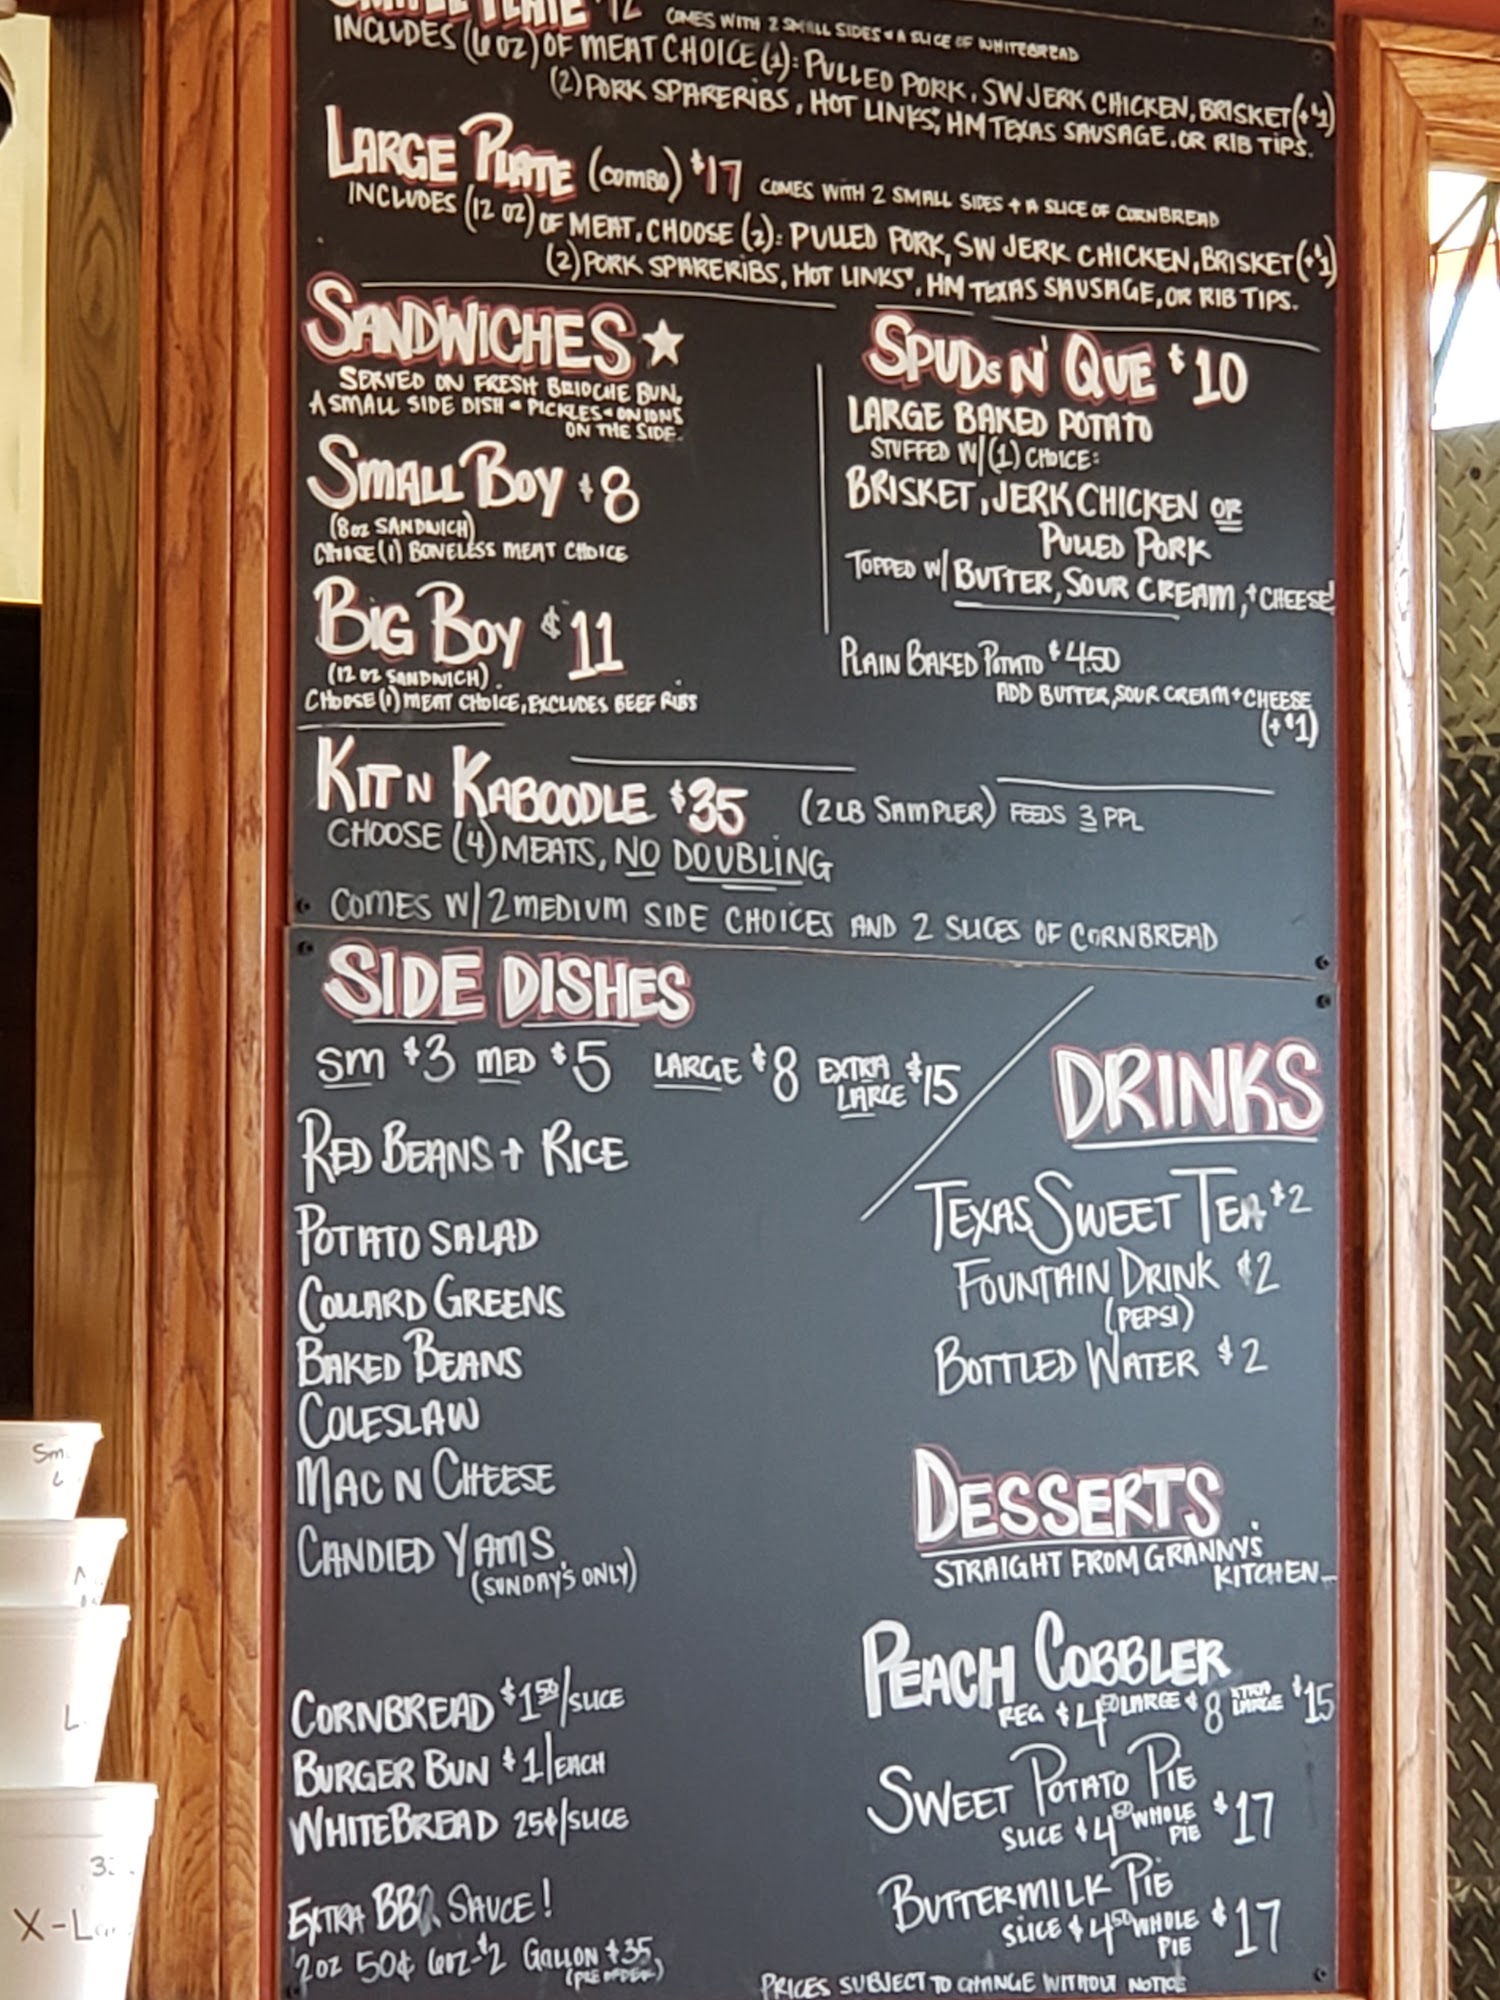 SMALL PLATE $12 COMES WITH 2 SMALL SIDES + A SLICE OF WHITEBREAD
INCLUDES (6 OZ) OF MEAT CHOICE (1): PULLED PORK, SW JERK CHICKEN, BRISKET (+$1)
(2) PORK SPARERIBS, HOT LINKS*, HM TEXAS SAUSAGE, OR RIB TIPS.
LARGE PLATE (COMBO) $17 COMES WITH 2 SMALL SIDES + A SLICE OF CORNBREAD
INCLUDES (12 OZ) OF MEAT, CHOOSE (2): PULLED PORK, SW JERK CHICKEN, BRISKET (+$1)
(2) PORK SPARERIBS, HOT LINKS*, HM TEXAS SAUSAGE, OR RIB TIPS.
SANDWICHES ★
SERVED ON FRESH BRIOCHE BUN,
A SMALL SIDE DISH + PICKLES + ONIONS
ON THE SIDE.
SMALL BOY $8
(8oz SANDWICH)
CHOOSE (1) BONELESS MEAT CHOICE
BIG BOY $11
(12 OZ SANDWICH)
CHOOSE (1) MEAT CHOICE, EXCLUDES BEEF RIBS
SPUDS N' QUE $10
LARGE BAKED POTATO
STUFFED W/ (1) CHOICE:
BRISKET, JERK CHICKEN OR
PULLED PORK
TOPPED W/ BUTTER, SOUR CREAM, + CHEESE!
PLAIN BAKED POTATO $4.50
ADD BUTTER, SOUR CREAM + CHEESE
(+$1)
KIT N KABOODLE $35 (2 LB SAMPLER) FEEDS 3 PPL
CHOOSE (4) MEATS, NO DOUBLING
COMES W/ 2 MEDIUM SIDE CHOICES AND 2 SLICES OF CORNBREAD
SIDE DISHES
SM $3 MED $5 LARGE $8 EXTRA LARGE $15
RED BEANS + RICE
POTATO SALAD
COLLARD GREENS
BAKED BEANS
COLESLAW
MAC N CHEESE
CANDIED YAMS
(SUNDAY'S ONLY)
CORNBREAD $1.50/SLICE
BURGER BUN $1/EACH
WHITEBREAD 25¢/SLICE
EXTRA BBQ SAUCE!
2oz 50¢ 6oz-$2 GALLON $35
(PRE ORDER)
DRINKS
TEXAS SWEET TEA $2
FOUNTAIN DRINK $2
(PEPSI)
BOTTLED WATER $2
DESSERTS
STRAIGHT FROM GRANNY'S
KITCHEN
PEACH COBBLER
REG $4.50 LARGE $8 XTRA LARGE $15
SWEET POTATO PIE
SLICE $4.50 WHOLE PIE $17
BUTTERMILK PIE
SLICE $4.50 WHOLE PIE $17
PRICES SUBJECT TO CHANGE WITHOUT NOTICE
Sm.
L
L.
X-L